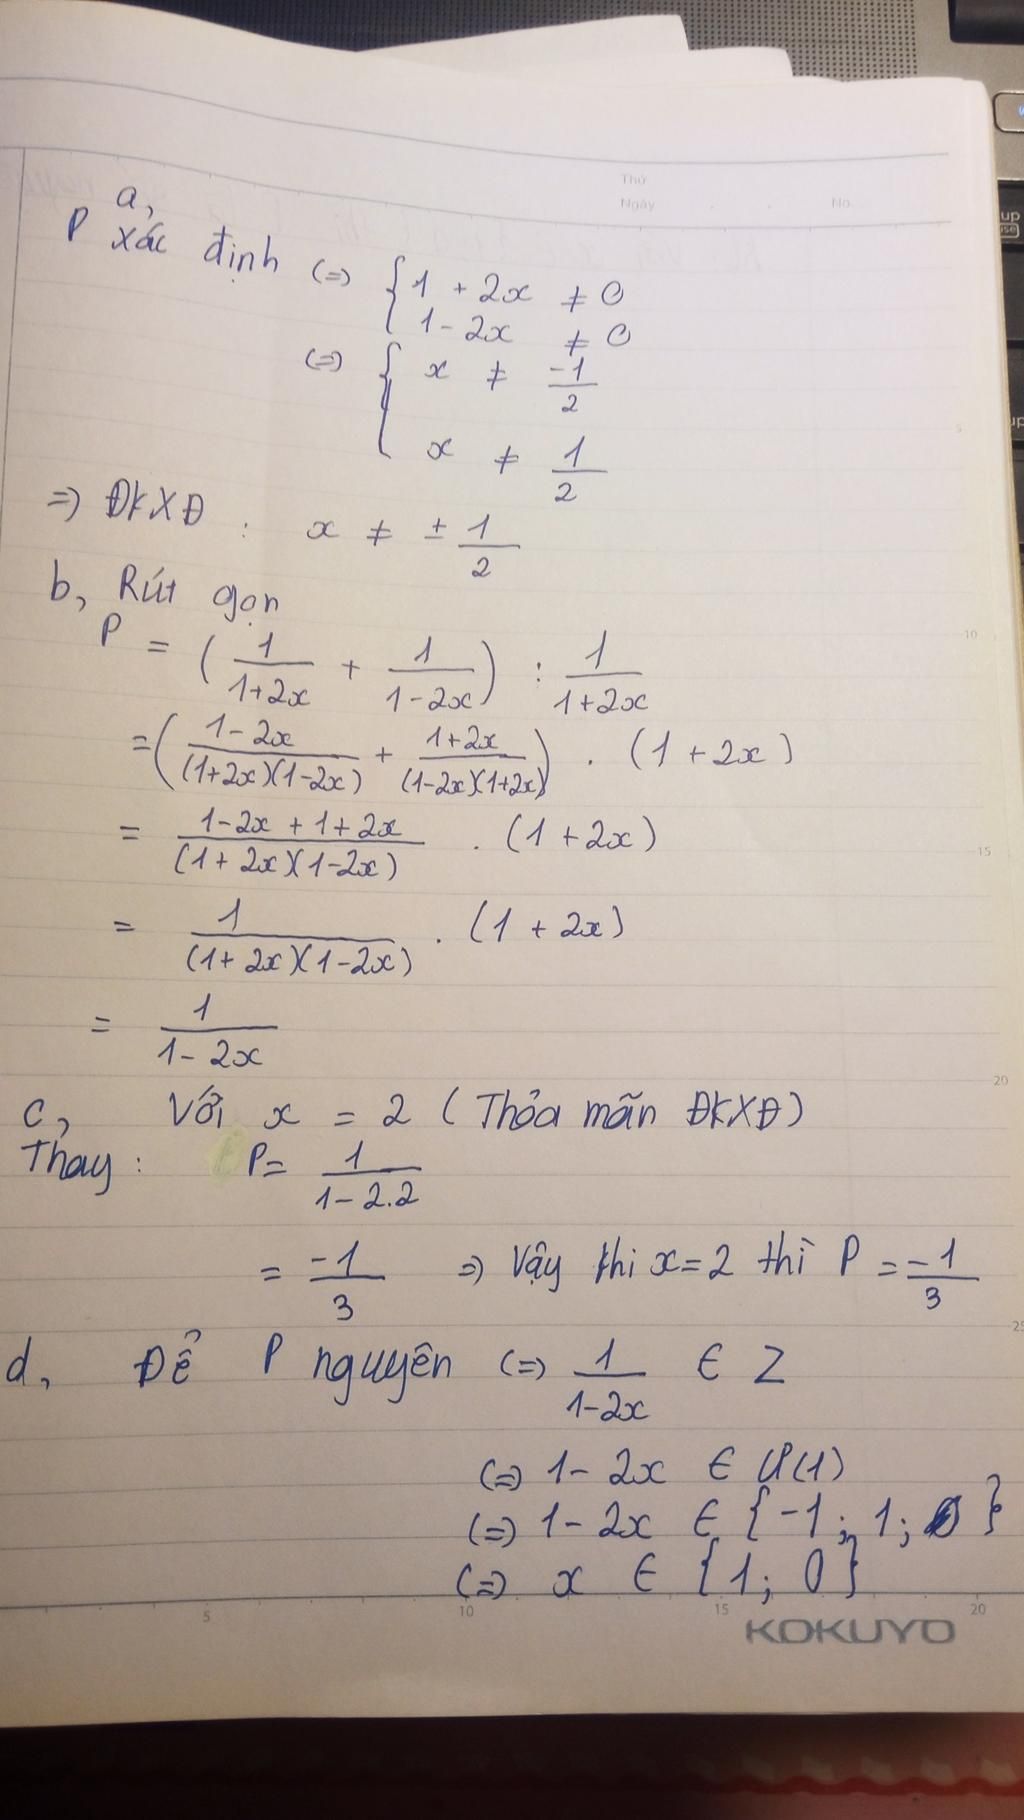 Thứ
Ngày . . No.
a,
P xác định (=) { 1 + 2x ≠ 0
1 - 2x ≠ 0
(=) { x ≠ -1/2
x ≠ 1/2
=) ĐKXĐ : x ≠ ± 1/2
b, Rút gọn
P = ( 1/(1+2x) + 1/(1-2x) ) : 1/(1+2x)
= ( (1-2x)/((1+2x)(1-2x)) + (1+2x)/((1-2x)(1+2x)) ) . (1 + 2x)
= (1-2x + 1+2x)/((1+2x)(1-2x)) . (1 + 2x)
= 1/((1+2x)(1-2x)) . (1 + 2x)
= 1/(1-2x)
c, Với x = 2 ( Thỏa mãn ĐKXĐ)
Thay : P = 1/(1-2.2)
= -1/3 =) Vậy khi x = 2 thì P = -1/3
d, Để P nguyên (=) 1/(1-2x) ∈ Z
(=) 1 - 2x ∈ Ư(1)
(=) 1 - 2x ∈ { -1 ; 1 ; }
(=) x ∈ { 1 ; 0 }
5 10 15 20
KOKUYO
5
10
15
20
25
up